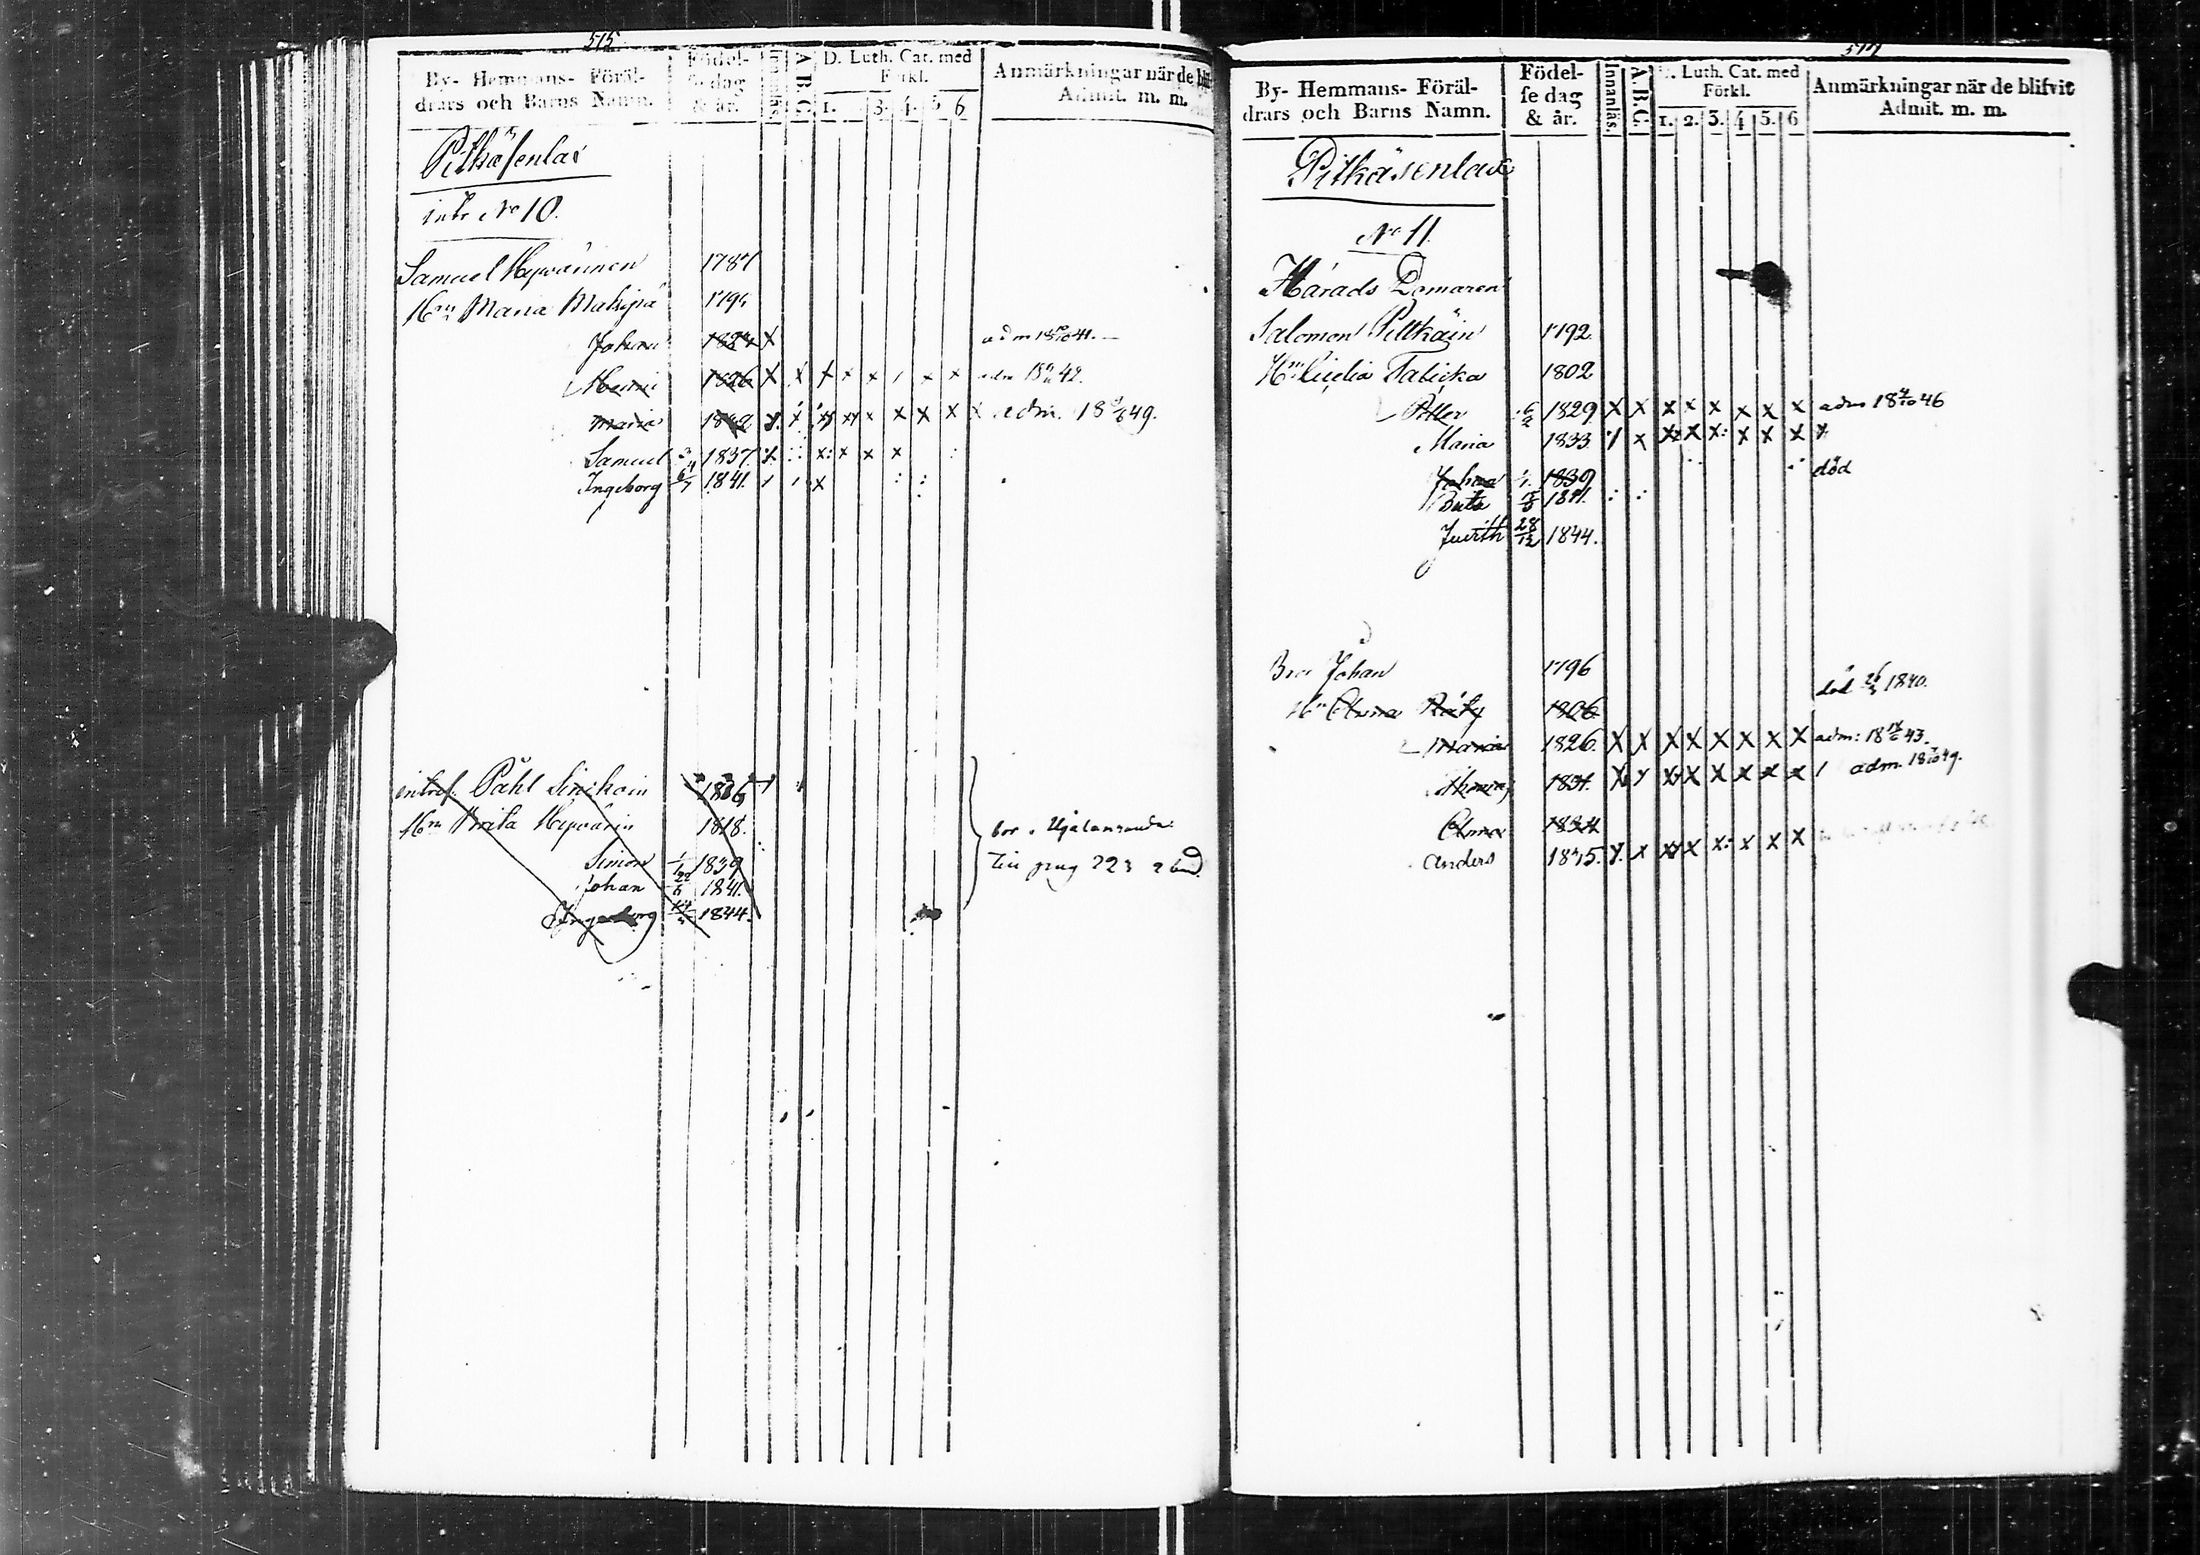 515
By- Hemmans- Föräl-
drars och Barns Namn.
Födel-
se dag
& år.
Innanläs.
A.B.C.
D. Luth. Cat. med
Förkl.
1. 3. 4. 5 6
Anmärkningar när de
Admit. m. m.
Pitkäsenlax
No 10.
Samuel Hyvärinen 1787
Hu Maria 179
Johan 1824 X adm 18 41.
1826 X X X x x / x x adm 18 42.
Maria X X X X adm. 18 49.
Samuel 1837. x x x x
Ingeborg 6/7 1841. x
Påhl Sinikain 1836
Hu Brita Hyvärin 1818.
Simon 1839
Johan 1841.
Ingeborg 1844.
bor i
Till pag 223 2 bd.
517
By- Hemmans- Föräl-
drars och Barns Namn.
Födel-
se dag
& år.
Innanläs.
A.B.C.
D. Luth. Cat. med
Förkl.
1. 2. 3. 4 5. 6
Anmärkningar när de blifvit
Admit. m. m.
Pitkäsenlax
No 11.
Härads Domaren
Salomon Pittkäin 1792.
Hu Cicilia Talicka 1802
Petter 1829 X X X X X X X X adm 18 46
Maria 1833 x X X X X X X
Johan 1839 död
Brita 1841.
Judith 28/12 1844.
Bror Johan 1796
Hu Anna Räty 1806 död 1840.
Maria 1826. X X X X X X X X adm: 18 43.
1831. X X X X X X adm. 18 49.
Anna 1834
Anders 1835. x X X X X X X